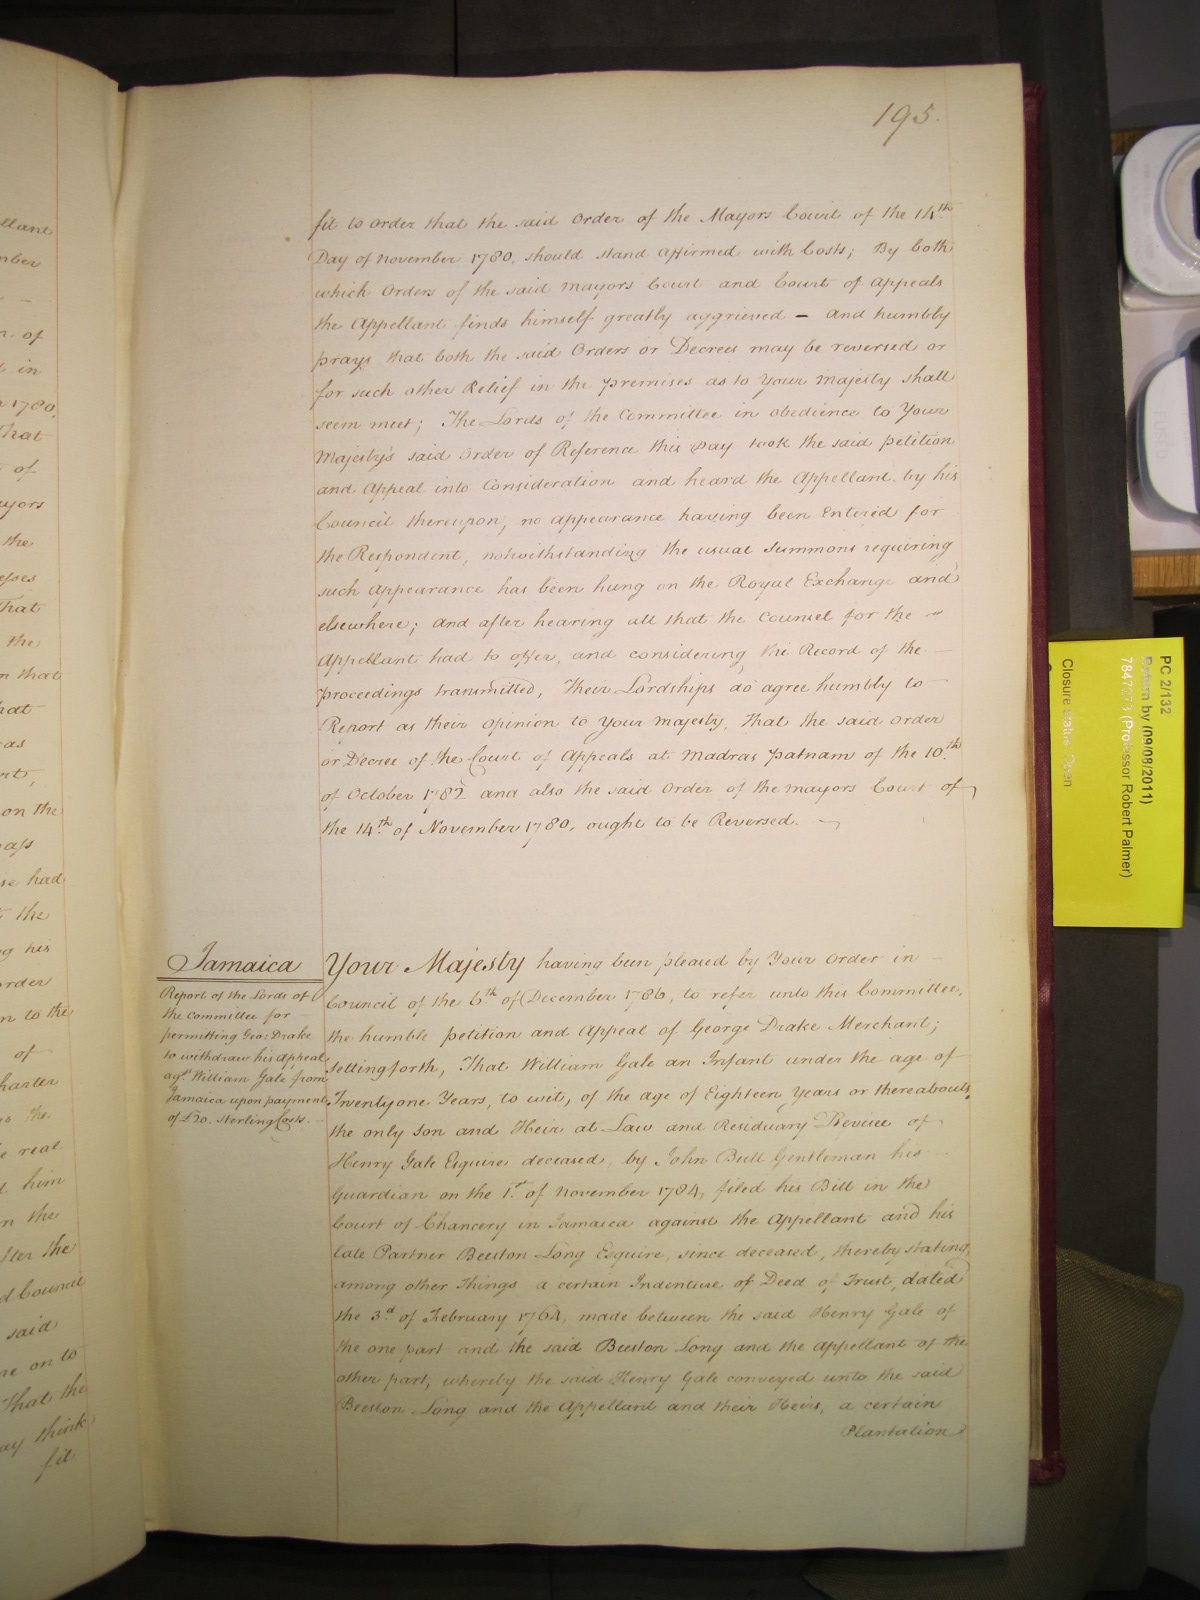 195.
fit to order that the said Order of the Mayors Court of the 14th
Day of November 1780, should stand affirmed with Costs; By both
which Orders of the said Mayors Court and Court of Appeals
the Appellant finds himself greatly aggrieved – and humbly
prays that both the said Orders or Decrees may be reversed or
for such other Relief in the premises as to Your Majesty shall
seem meet; The Lords of the Committee in obedience to Your
Majesty's said Order of Reference this Day took the said petition
and Appeal into Consideration and heard the Appellant by his
Council thereupon, no appearance having been Entered for
the Respondent, notwithstanding the usual Summons requiring
such Appearance has been hung on the Royal Exchange and
elsewhere; and after hearing all that the Counsel for the
Appellant had to offer, and considering the Record of the
proceedings transmitted, Their Lordships do agree humbly to
Report as their Opinion to Your Majesty, That the said Order
or Decree of the Court of Appeals at Madras patnam of the 10th
of October 1782 and also the said Order of the Mayors Court of
the 14th of November 1780, ought to be Reversed.
Jamaica
Report of the Lords of
the Committee for
permitting Geo: Drake
to withdraw his Appeal
agst William Gale from
Jamaica upon payment
of £20. sterling Costs.
Your Majesty having been pleased by Your Order in
Council of the 6th of December 1786, to refer unto this Committee,
the humble petition and Appeal of George Drake Merchant;
setting forth, That William Gale an Infant under the age of
Twenty one Years, to wit, of the age of Eighteen Years or thereabouts,
the only son and Heir at Law and Residuary Devisee of
Henry Gale Esquire deceased, by John Bull Gentleman his
Guardian on the 1st of November 1784, filed his Bill in the
Court of Chancery in Jamaica against the Appellant and his
late Partner Beeston Long Esquire, since deceased, thereby stating,
among other Things a certain Indenture of Deed of Trust, dated
the 3d of February 1764, made between the said Henry Gale of
the one part and the said Beeston Long and the Appellant of the
other part, whereby the said Henry Gale conveyed unto the said
Beeston Long and the Appellant and their Heirs, a certain
Plantation
llant
mber
of
in
1780.
That
of
ayors
the
That
the
that
hat
as
on the
se had
the
his
order
to the
of
harter
the
real
him
on the
fter the
d Council
said
on to
That the
may think
fit
PC 2/132
Return by (09/08/2011)
(Professor Robert Palmer)
Closure status Open